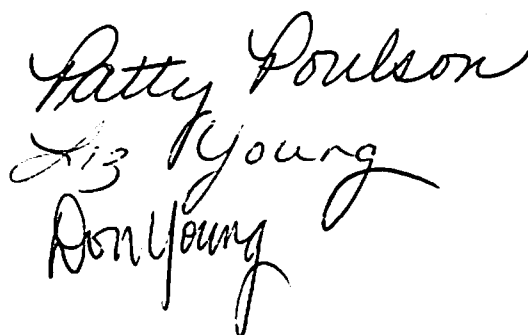 Patty Poulson
Liz Young
Don Young